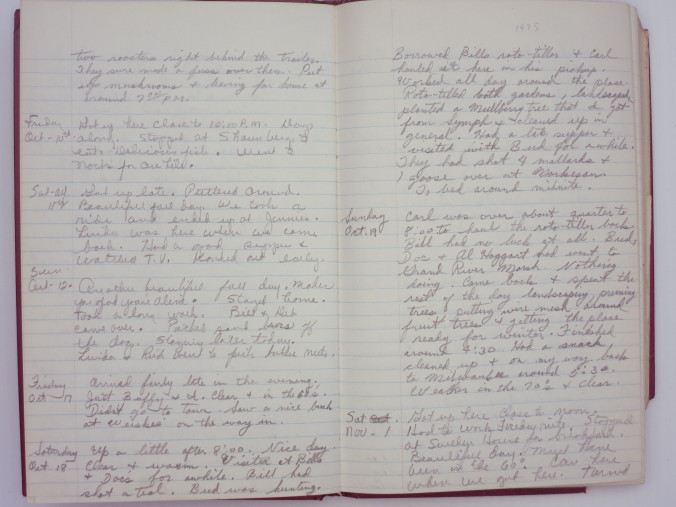 two roosters right behind the Trailer.
They sure made a fuss over them. Put
up mushrooms & leaving for home at
around 7:00 P.M.
Friday
Oct - 10th
Got up here close to 10:00 P.M. Dougs
along. Stopped at Shawnberg's &
eats Delicious fish. Went to
Norb's for awhile.
Saturday
11th
Got up late. Puttered around.
Beautiful fall day. We took a
ride and ended up at Jennies.
Linda was here when we came
back. Had a good supper &
watched T.V. Conked out early.
Sun
Oct - 12 -
Another beautiful fall day. Makes
you feel good your alive. Stayed home.
Took a long walk. Bill & Deb
came over. Picked sand burs off
the dog. Staying later today.
Linda & Rich went to pick hickory nuts.
Friday
Oct - 17
Arrived fairly late in the evening.
Just Biffy & I. Clear & in the 60's.
Didn't go to Town. Saw a nice buck
at Weishes on the way in.
Saturday
Oct 18
Up a little after 8:00. Nice day
Clear & warm. Visited at Bills
& Docs for awhile. Bill had
shot a teal. Bud was hunting.
1975
Borrowed Bills roto-tiller & Carl
hauled it here in his pickup.
Worked all day around the place.
Roto-tilled both gardens, landscaped
planted a Mullberry tree that I got
from Lymph & cleaned up in
general. Had a late supper &
visited with Bud for awhile.
They had shot 4 mallards &
1 goose over at Waukegan.
To bed around midnite.
Sunday
Oct. 19
Carl was over about quarter to
8:00 to haul the roto-tiller back.
Bill had no luck at all. Bud,
Doc & Al Haggart had went to
Grand River Marsh. Nothing
doing. Came back & spent the
rest of the day landscaping, pruning
trees putting wire mesh around
fruit trees & getting the place
ready for winter. Finished
around 4:30. Had a snack,
cleaned up & on my way back
to Milwaukee around 5:30.
Weather in the 70's & clear.
Sat
Nov - 1
Got up here close to noon.
Had to work Friday nite. Stopped
at Surleys House for breakfast.
Beautiful day. Must have
been in the 60's. Carl here
when we got here. Turned